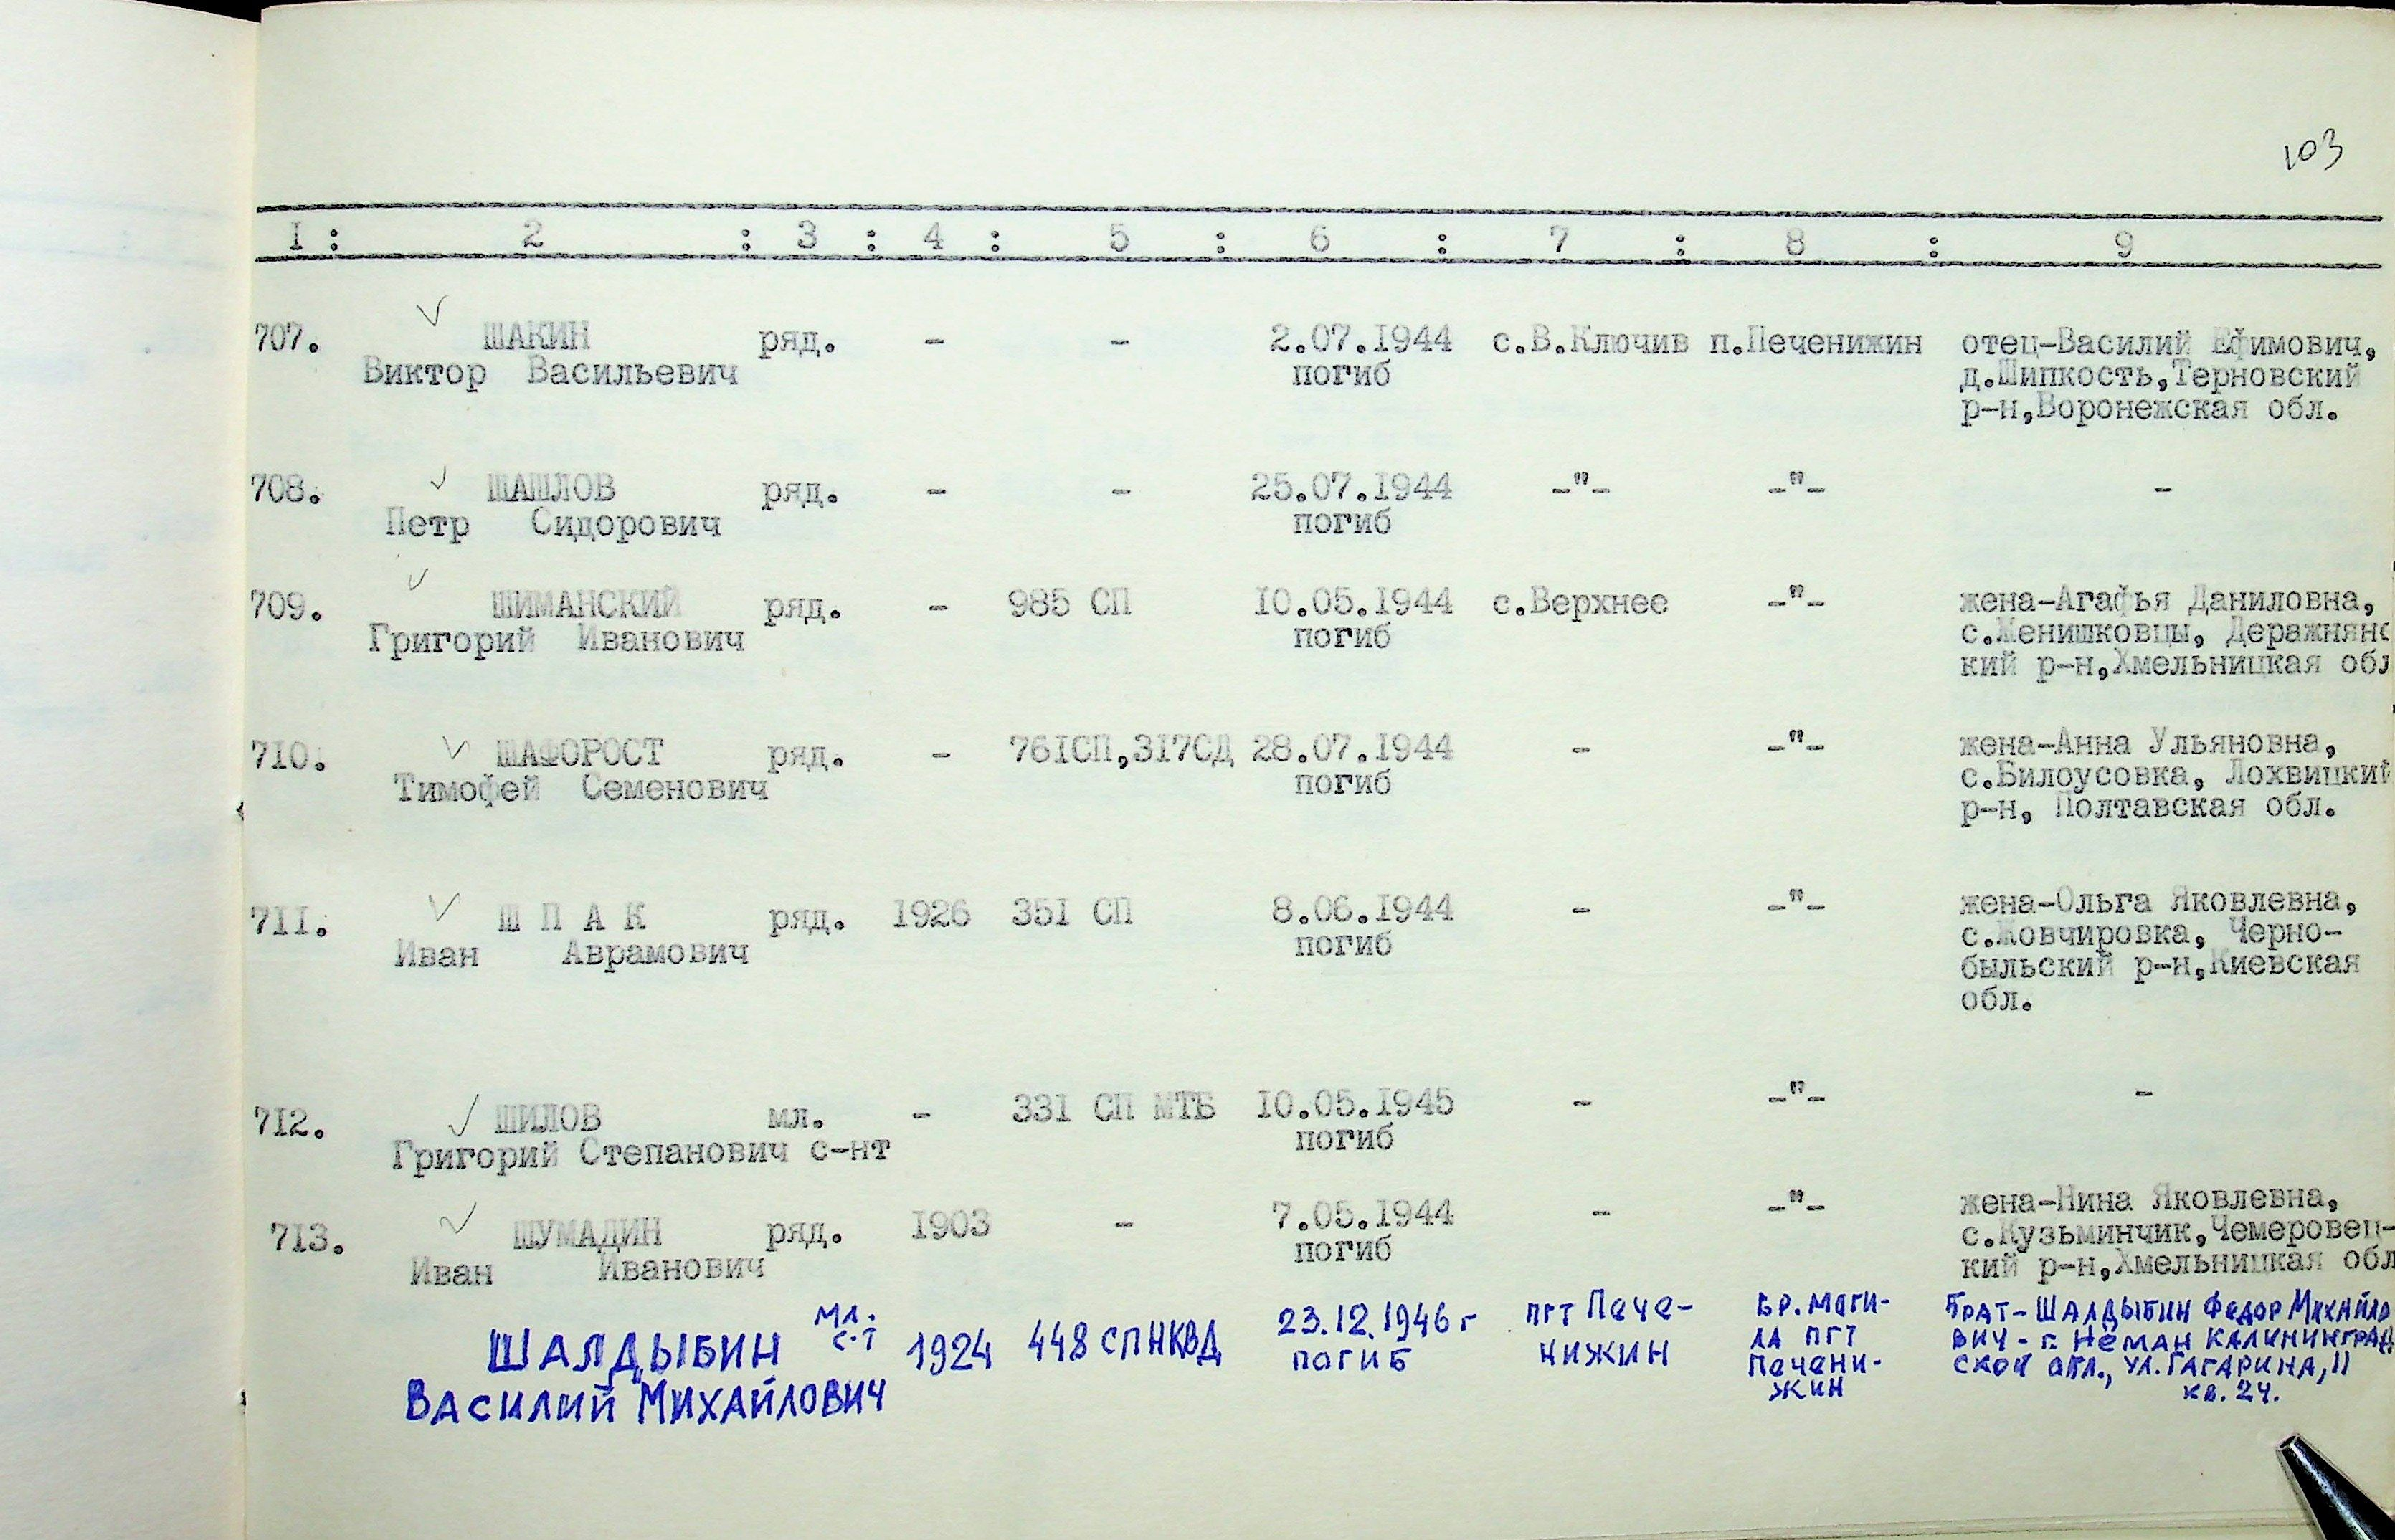 103
I : 2 : 3 : 4 : 5 : 6 : 7 : 8 : 9
707. ШАКИН ряд. - - 2.07.1944 с.В.Ключив п.Печенижин отец-Василий Ефимович,
Виктор Васильевич погиб д.Шипкость,Терновский
р-н,Воронежская обл.
708. ШАШЛОВ ряд. - - 25.07.1944 -"- -"- -
Петр Сидорович погиб
709. ШИМАНСКИЙ ряд. - 985 СП 10.05.1944 с.Верхнее -"- жена-Агафья Даниловна,
Григорий Иванович погиб с.Женишковцы, Деражнянс
кий р-н,Хмельницкая обл
710. ШАФОРОСТ ряд. - 761СП,317СД 28.07.1944 - -"- жена-Анна Ульяновна,
Тимофей Семенович погиб с.Билоусовка, Лохвицкий
р-н, Полтавская обл.
711. Ш П А К ряд. 1926 351 СП 8.06.1944 - -"- жена-Ольга Яковлевна,
Иван Аврамович погиб с.Жовчировка, Черно-
быльский р-н,Киевская
обл.
712. ШИЛОВ мл. - 331 СП МТБ 10.05.1945 - -"- -
Григорий Степанович с-нт погиб
713. ШУМАДИН ряд. 1903 - 7.05.1944 - -"- жена-Нина Яковлевна,
Иван Иванович погиб с.Кузьминчик,Чемеровец-
кий р-н,Хмельницкая обл
ШАЛДЫБИН мл. с-т 1924 448 СП НКВД 23.12.1946 г пгт Пече- бр. моги- Брат - Шалдыбин Федор Михайло
Василий Михайлович погиб нижин ла пгт вич - г. Нёман Калининград
Печени- ской обл., ул. Гагарина, 11
жин кв. 24.